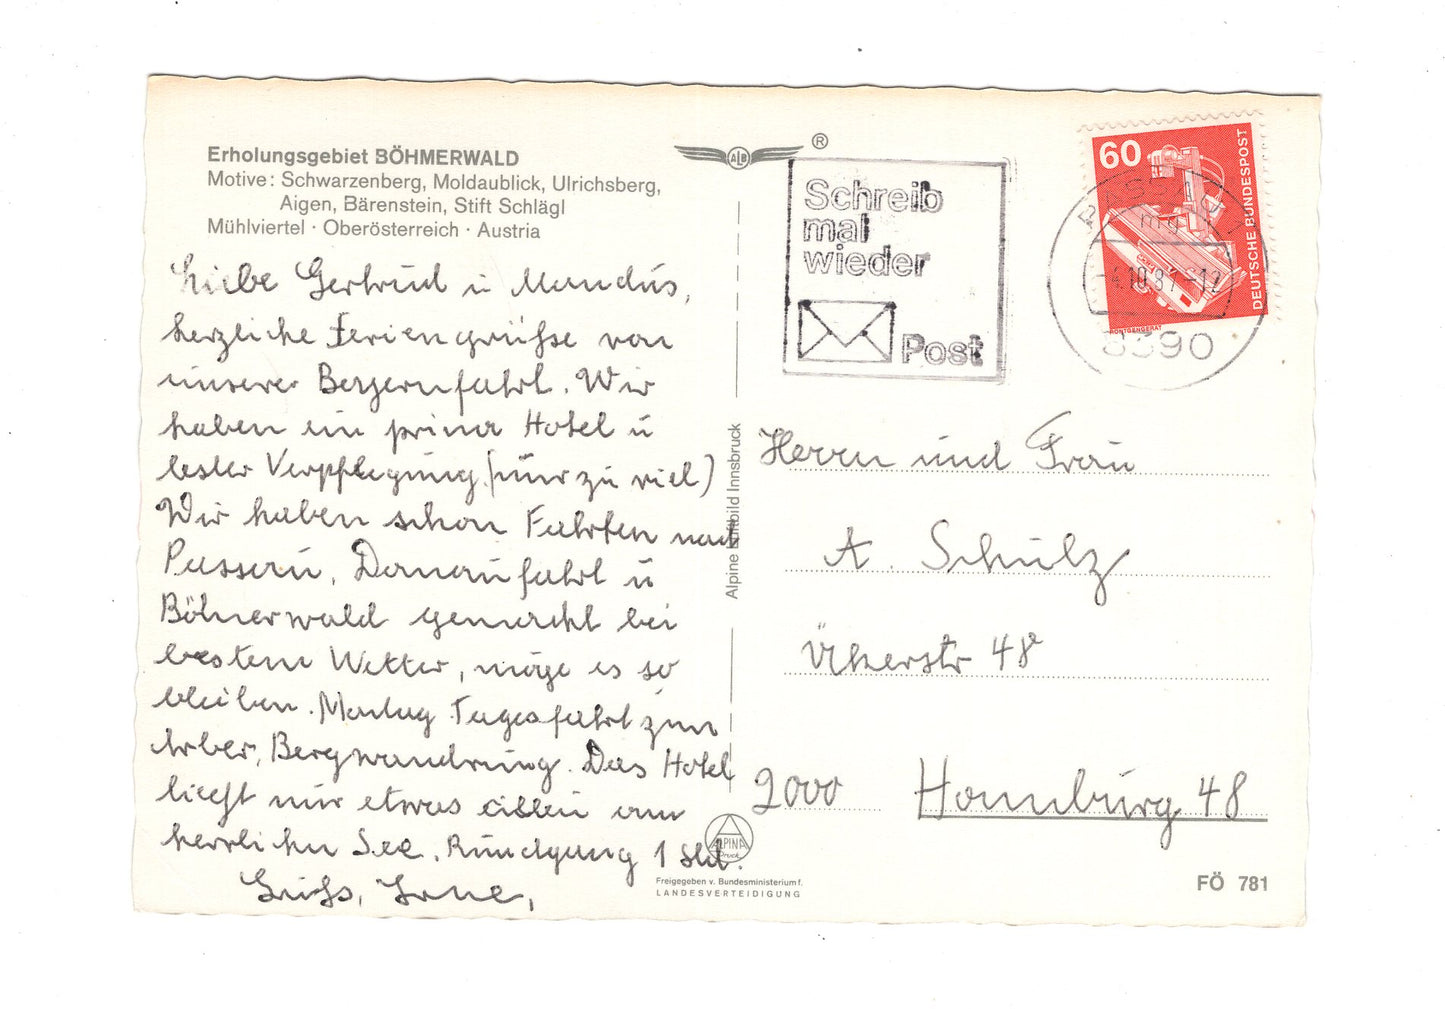 Erholungsgebiet BÖHMERWALD
Motive: Schwarzenberg, Moldaublick, Ulrichsberg,
Aigen, Bärenstein, Stift Schlägl
Mühlviertel · Oberösterreich · Austria
Liebe Gertrud u Mandus,
herzliche Feriengrüße von
unserer Bayernfahrt. Wir
haben ein prima Hotel u
bester Verpflegung (nur zu viel)
Wir haben schon Fahrten nach
Passau, Donaufahrt u
Böhmerwald gemacht bei
bestem Wetter, möge es so
bleiben. Montag Tagesfahrt zum
Arber, Bergwandrung. Das Hotel
liegt nur etwas allein am
herrlichen See. Rundgang 1 Std.
Gruß, Irene,
Alpine Luftbild Innsbruck
ALB
®
Schreib
mal
wieder
Post
60
DEUTSCHE BUNDESPOST
RÖNTGENGERÄT
PASSAU 1
mg
-4.10.81-12
8390
Herrn und Frau
A. Schulz
48
2000 Hamburg 48
ALPINA
Druck
Freigegeben v. Bundesministerium f.
LANDESVERTEIDIGUNG
FÖ 781